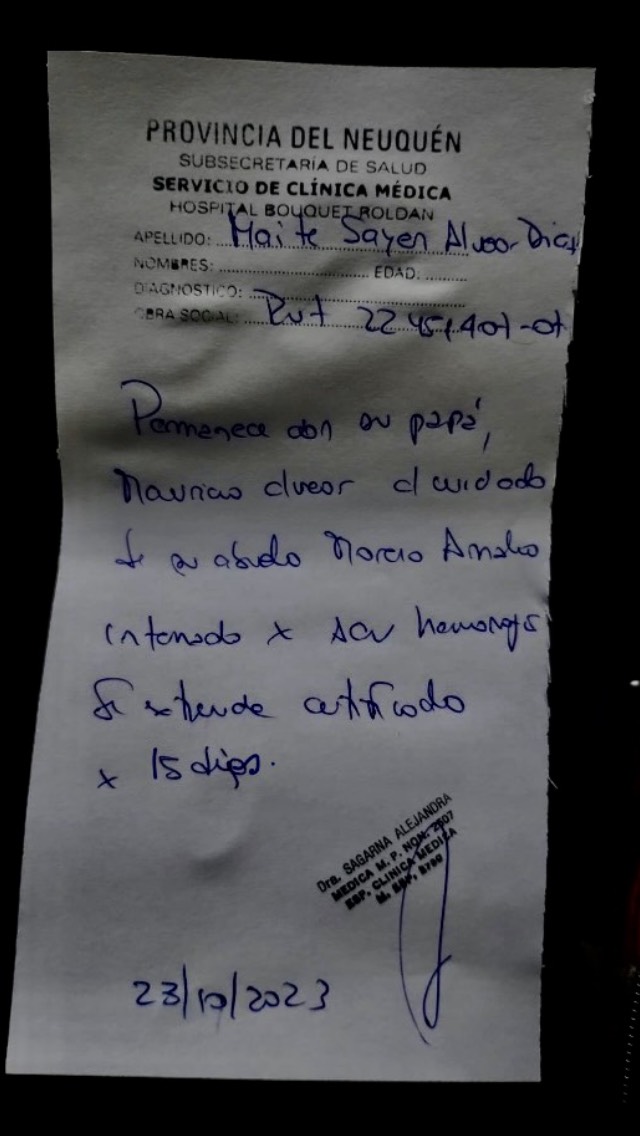 PROVINCIA DEL NEUQUÉN
SUBSECRETARÍA DE SALUD
SERVICIO DE CLÍNICA MÉDICA
HOSPITAL BOUQUET ROLDAN
APELLIDO: Maite Sayen
NOMBRES: EDAD:
DIAGNOSTICO:
OBRA SOCIAL: Rut
Permanece con su papá,
al cuidado
de su abuelo
internado x ACV
Se extiende certificado
x 15 días.
Dra. SAGARNA ALEJANDRA
MEDICA M. P. NQN. 2607
ESP. CLINICA MEDICA
23/10/2023